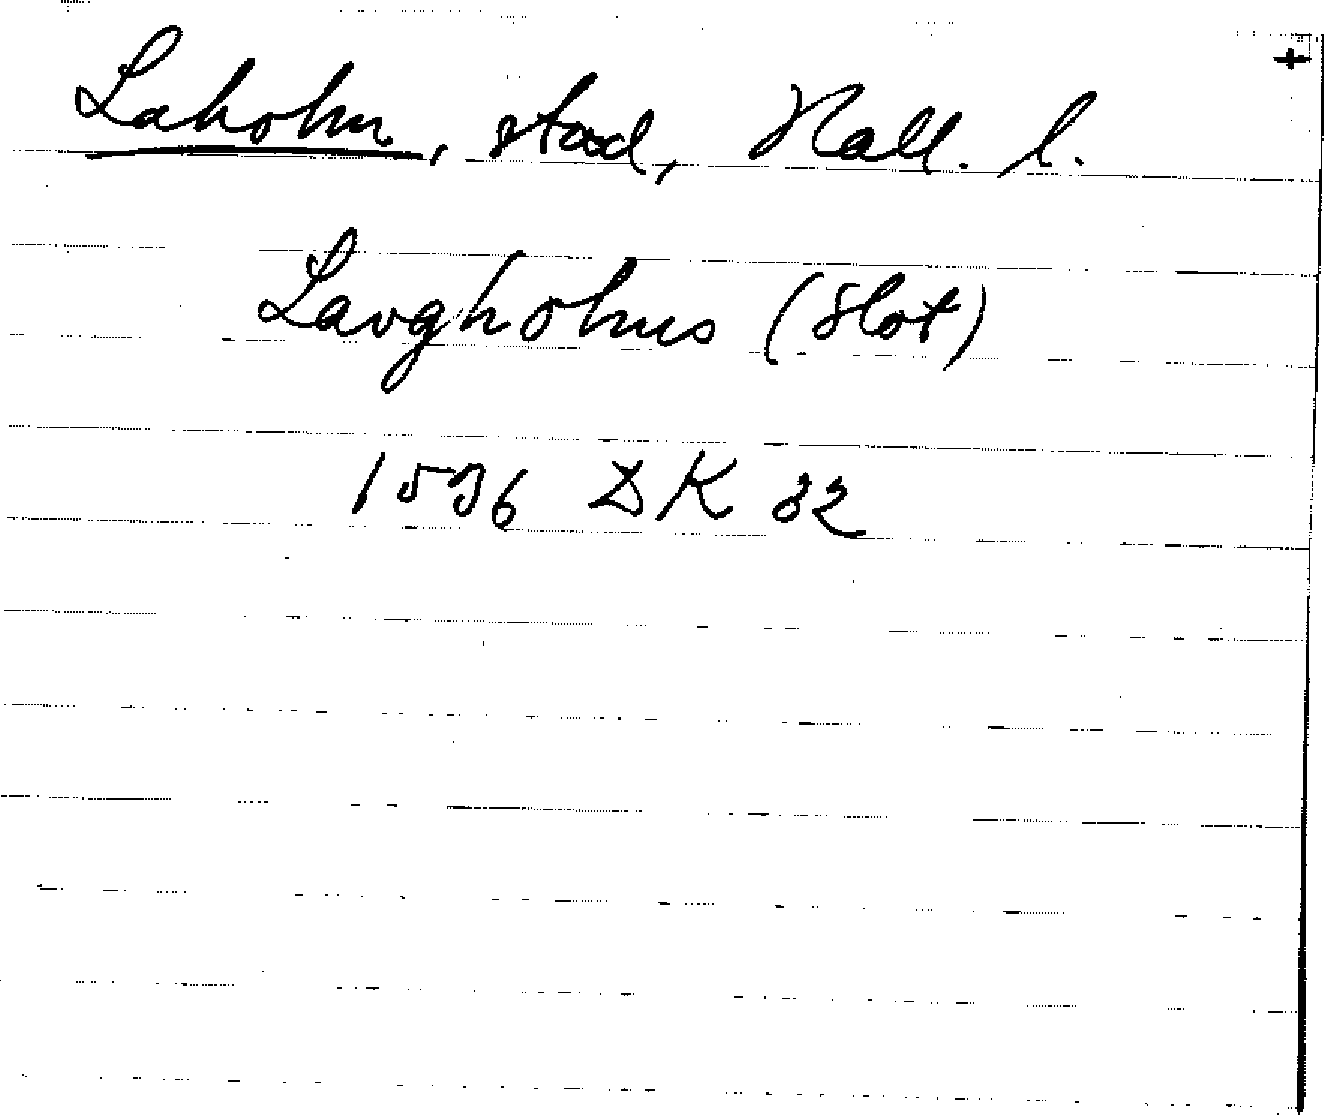 Laholm, stad, Hall. l.
Laugholms (slot)
1536 DK 32